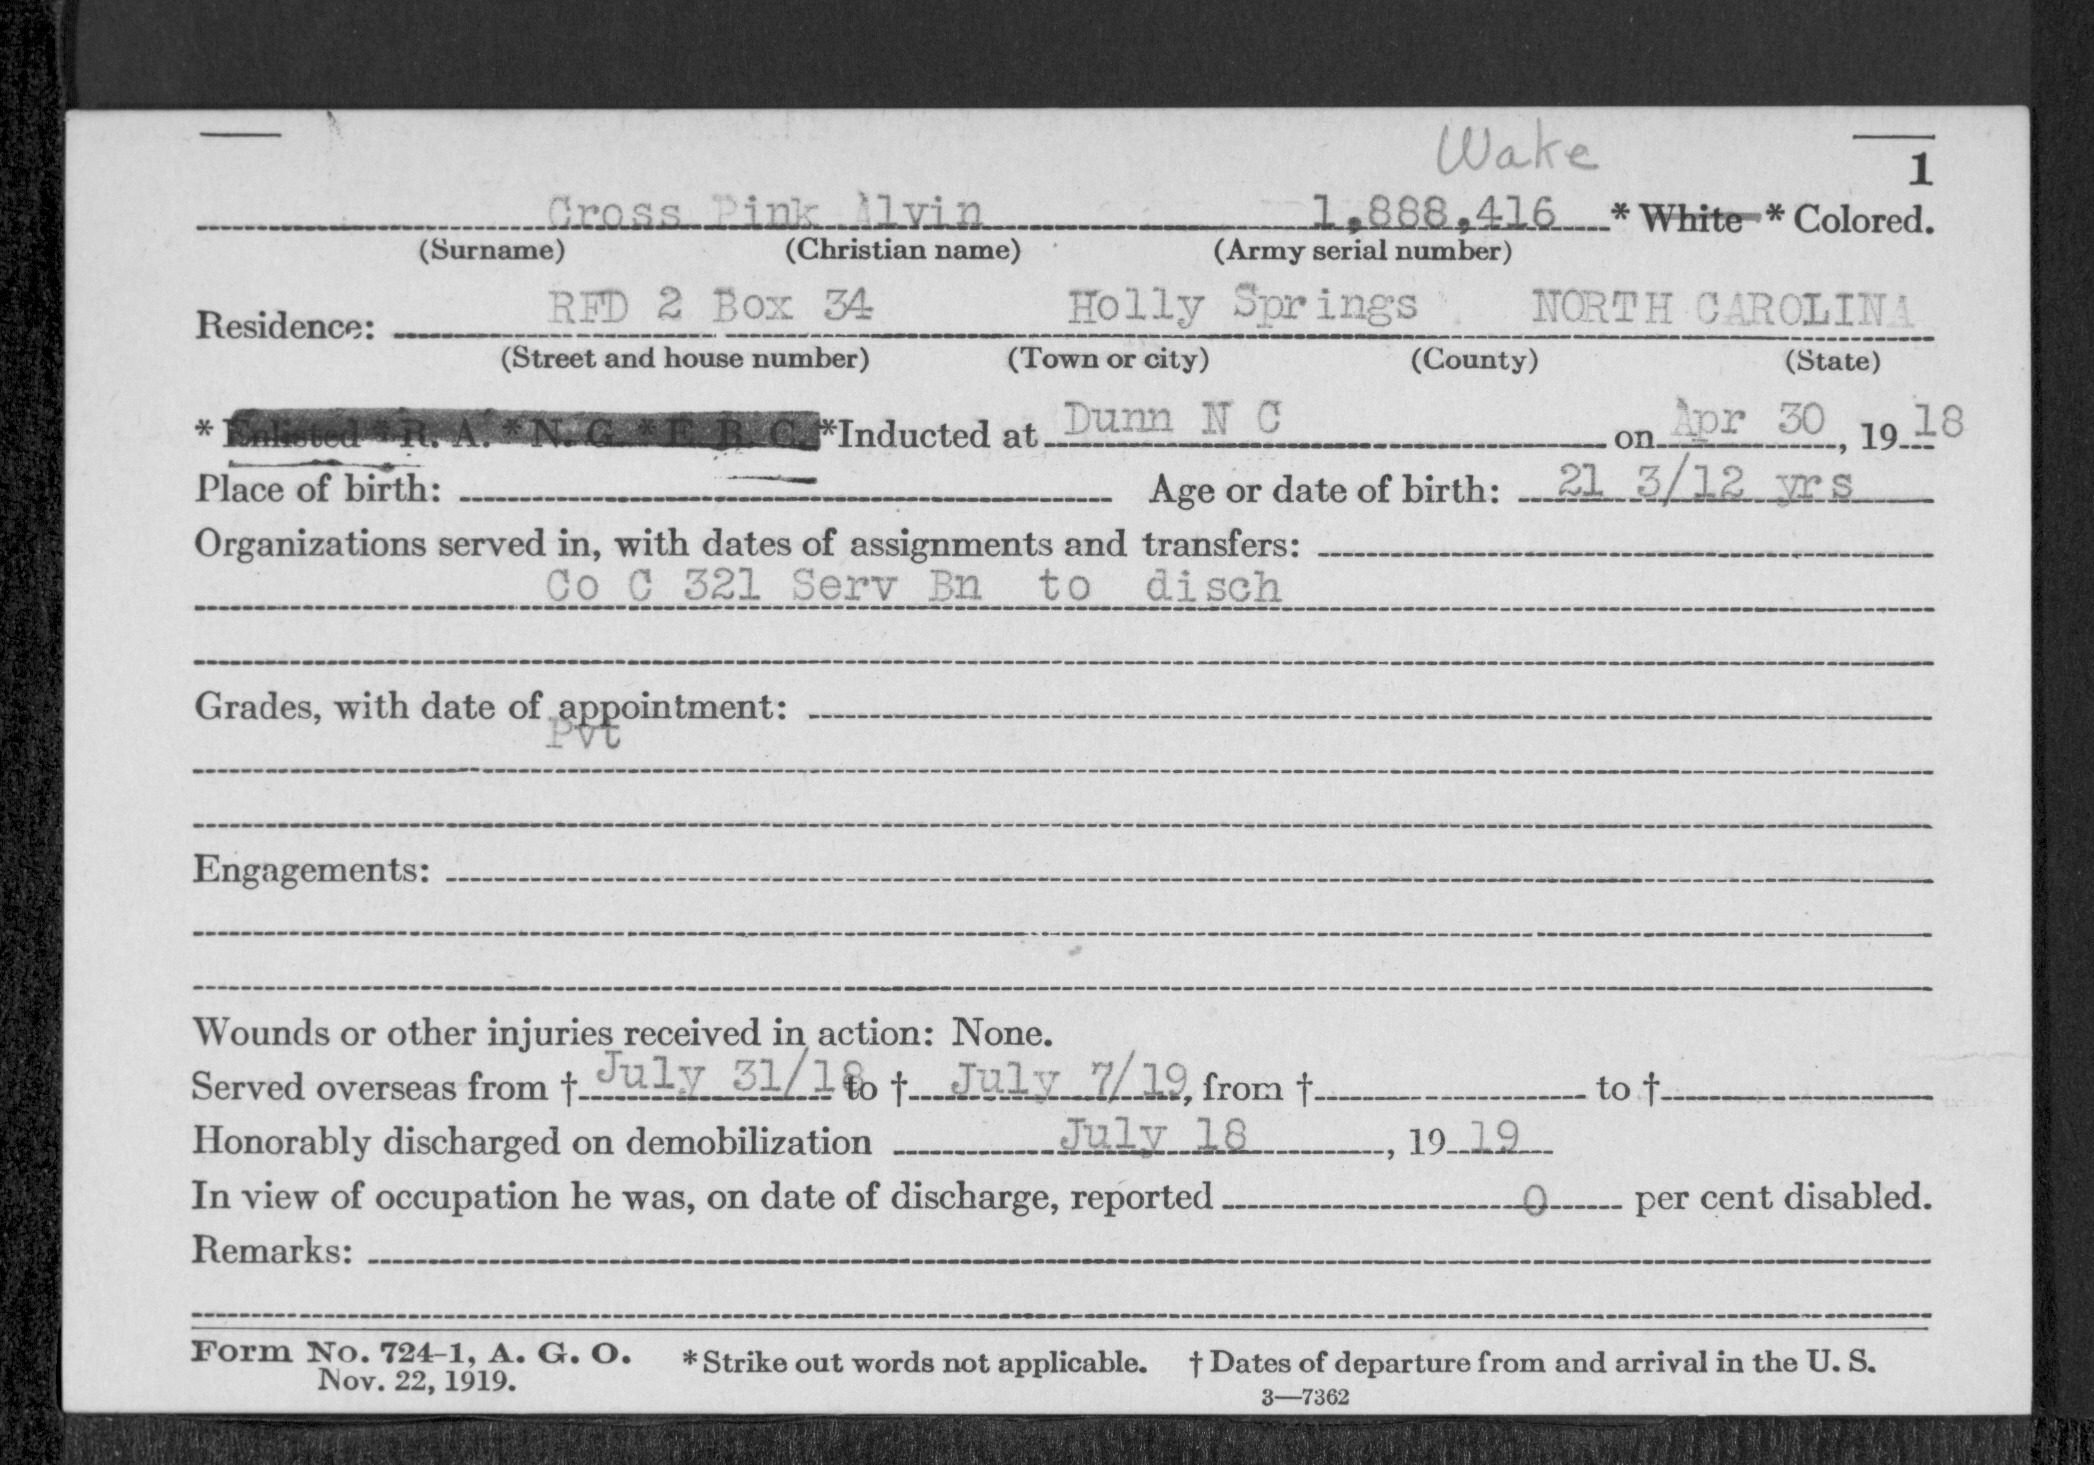 Wake
1
Cross Pink Alvin 1,888,416 * White * Colored.
(Surname) (Christian name) (Army serial number)
Residence: RFD 2 Box 34 Holly Springs NORTH CAROLINA
(Street and house number) (Town or city) (County) (State)
* Enlisted * R. A. * N. G. * E. R. C. *Inducted at Dunn N C on Apr 30, 19 18
Place of birth: Age or date of birth: 21 3/12 yrs
Organizations served in, with dates of assignments and transfers:
Co C 321 Serv Bn to disch
Grades, with date of appointment:
Pvt
Engagements:
Wounds or other injuries received in action: None.
Served overseas from † July 31/18 to † July 7/19, from † to †
Honorably discharged on demobilization July 18, 19 19
In view of occupation he was, on date of discharge, reported 0 per cent disabled.
Remarks:
Form No. 724-1, A. G. O. * Strike out words not applicable. † Dates of departure from and arrival in the U. S.
Nov. 22, 1919. 3—7362